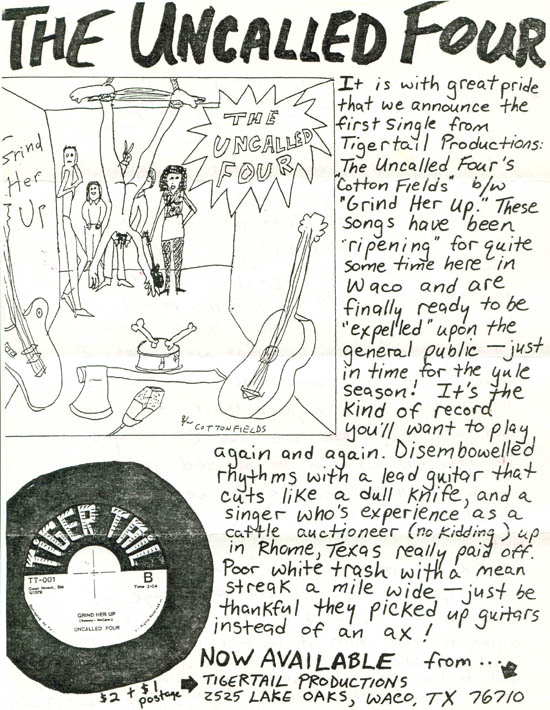 THE UNCALLED FOUR
THE
UNCALLED
FOUR
Grind
Her
Up
B/W COTTONFIELDS
It is with great pride
that we announce the
first single from
Tigertail Productions:
The Uncalled Four's
"Cotton Fields" b/w
"Grind Her Up." These
songs have been
"ripening" for quite
some time here in
Waco and are
finally ready to be
"expelled" upon the
general public — just
in time for the yule
season! It's the
kind of record
you'll want to play
again and again. Disembowelled
rhythms with a lead guitar that
cuts like a dull knife, and a
singer who's experience as a
cattle auctioneer (no kidding) up
in Rhome, Texas really paid off.
Poor white trash with a mean
streak a mile wide — just be
thankful they picked up guitars
instead of an ax!
TIGER TAIL
TT-001
B
Time 2:04
GRIND HER UP
UNCALLED FOUR
NOW AVAILABLE from ...
$2 + $1
postage
TIGERTAIL PRODUCTIONS
2525 LAKE OAKS, WACO, TX 76710